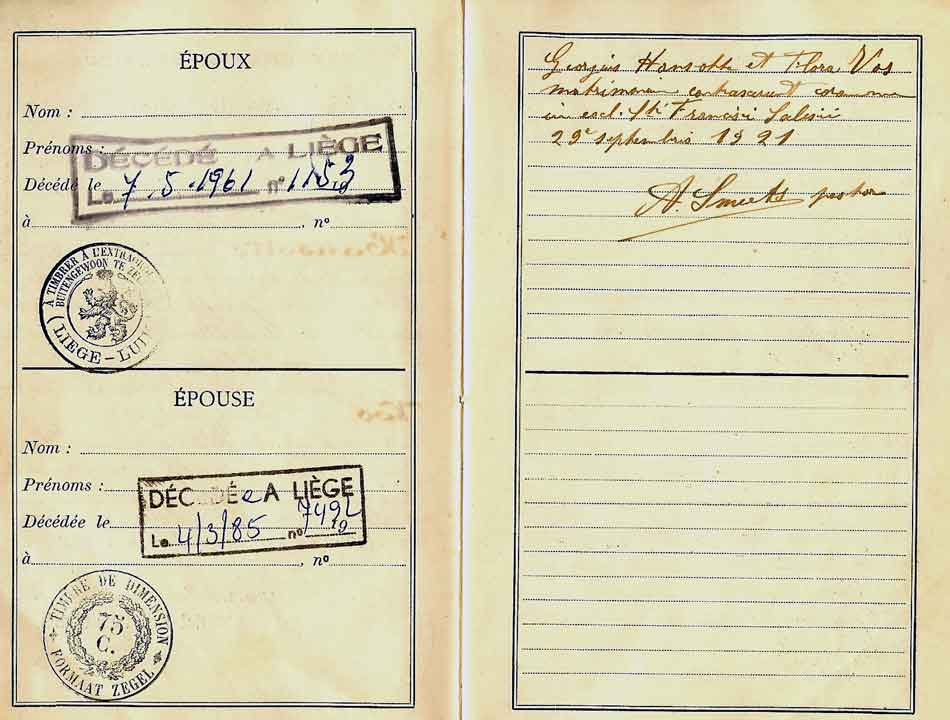 ÉPOUX
Nom :
Prénoms :
DÉCÉDÉ A LIÈGE
Décédé le
Le 7.5.1961 nº 1153
à , nº
À TIMBRER À L'EXTRAORD
BUITENGEWOON TE ZE
LIEGE-LUI
ÉPOUSE
Nom :
Prénoms :
DÉCÉDÉe A LIÈGE
Décédée le 19
Le 4/3/85 nº 749
à , nº
TIMBRE DE DIMENSION
75
C.
FORMAAT ZEGEL
Georgius Hansotte et Flora Vos
matrimonium contraxerunt coram me
in eccl. Sti Francisci Salesii
29e septembris 1921
A. Smeets pastor